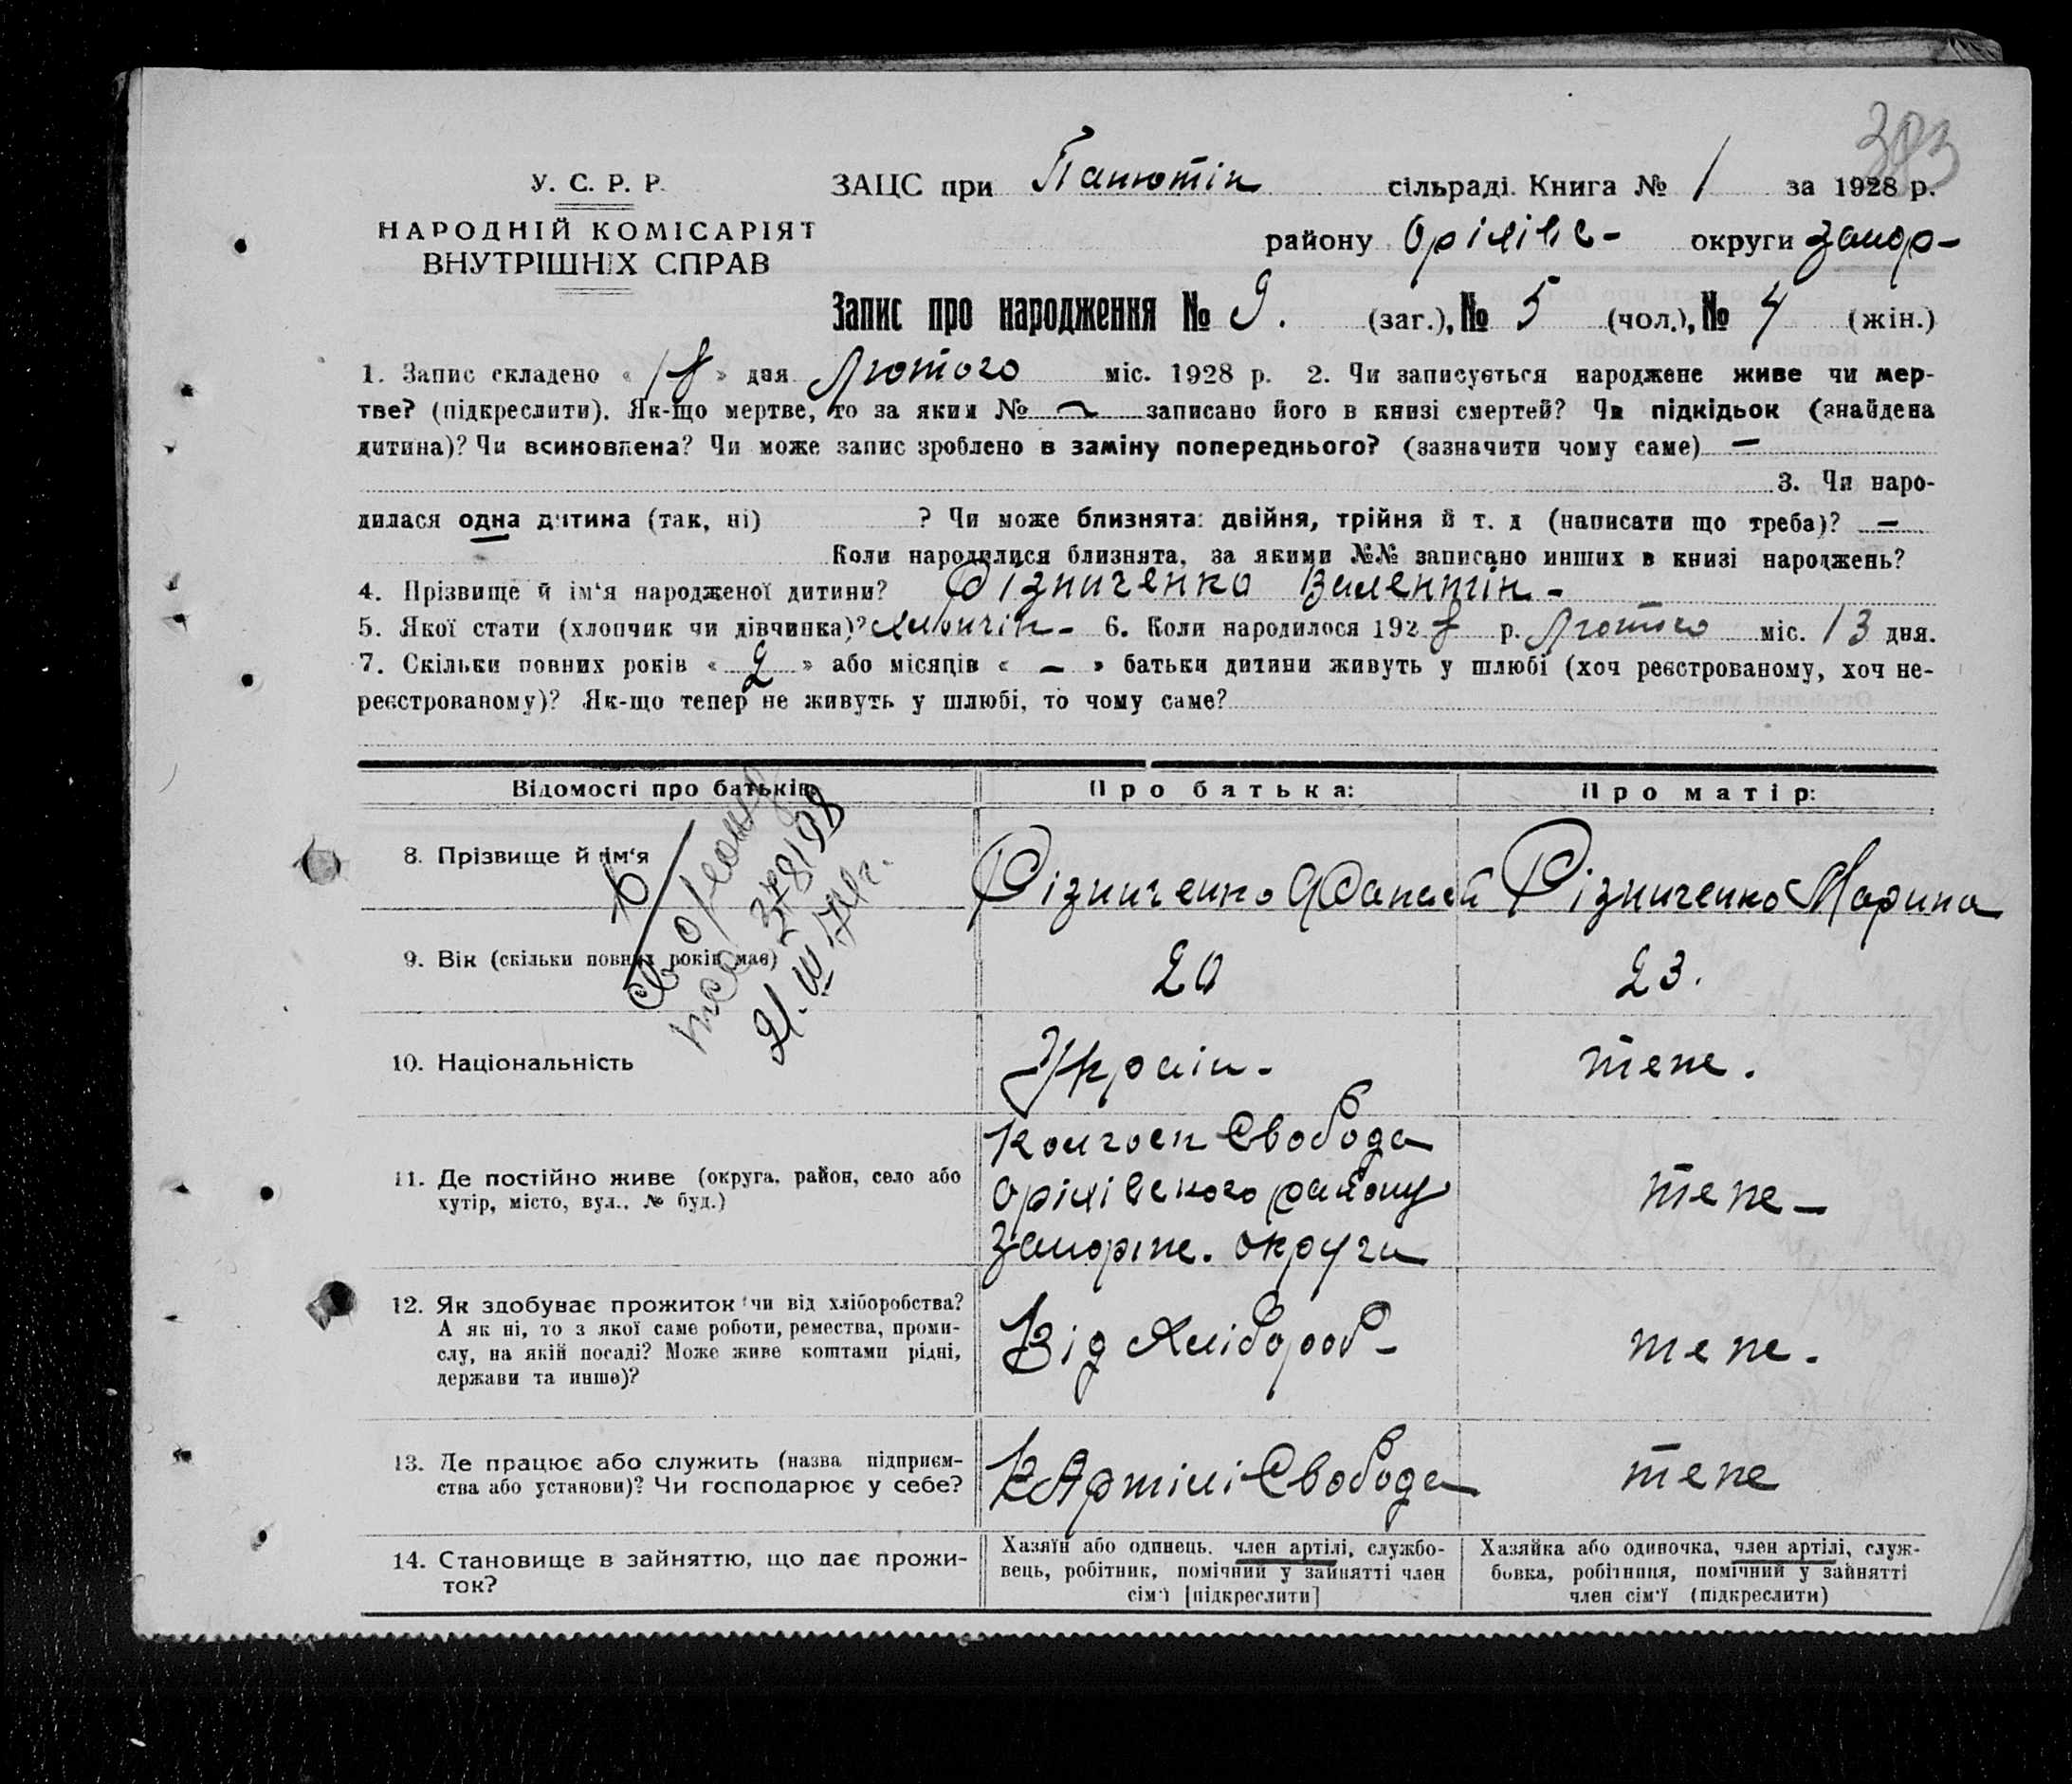 383
У. С. Р. Р.
НАРОДНІЙ КОМІСАРІЯТ
ВНУТРІШНІХ СПРАВ
ЗАЦС при Панютін сільраді. Книга № 1 за 1928 р.
району Орілівс- округи Запор-
Запис про народження № 9. (заг.), № 5 (чол.), № 4 (жін.)
1. Запис складено « 18 » дня Лютого міс. 1928 р. 2. Чи записується народжене живе чи мер-
тве? (підкреслити). Як-що мертве, то за яким № — записано його в книзі смертей? Чи підкідьок (знайдена
дитина)? Чи всиновлена? Чи може запис зроблено в заміну попереднього? (зазначити чому саме) —
3. Чи наро-
дилася одна дитина (так, ні) ? Чи може близнята: двійня, трійня й т. д (написати що треба)? —
Коли народилися близнята, за якими №№ записано инших в книзі народжень?
4. Прізвище й ім‘я народженої дитини? Різниченко Валентін -
5. Якої статі (хлопчик чи дівчинка)? 6. Коли народилося 1928 р. Лютого міс. 13 дня.
7. Скільки повних років « 2 » або місяців « — » батьки дитини живуть у шлюбі (хоч реєстрованому, хоч не-
реєстрованому)? Як-що тепер не живуть у шлюбі, то чому саме?
Відомості про батьків: Про батька: Про матір:
8. Прізвище й ім‘я Різниченко Афанасій Різниченко Марина
9. Вік (скільки повних років має) 20 23.
378198
21. III
10. Національність Україн- теже.
11. Де постійно живе (округа, район, село або
хутір, місто, вул., № буд.)
Свобода
Орілівського району
Запоріже. округи
теже-
12. Як здобуває прожиток чи від хліборобства?
А як ні, то з якої саме роботи, ремества, проми-
слу, на якій посаді? Може живе коштами рідні,
держави та инше)?
Від Хлібороб-
теже.
13. Де працює або служить (назва підприєм-
ства або установи)? Чи господарює у себе?
Артілі Свобода
теже
14. Становище в зайняттю, що дає прожи-
ток?
Хазяїн або одинець, член артілі, службо-
вець, робітник, помічний у зайнятті член
сім‘ї [підкреслити]
Хазяйка або одиночка, член артілі, служ-
бовка, робітниця, помічний у зайнятті
член сім‘ї (підкреслити)